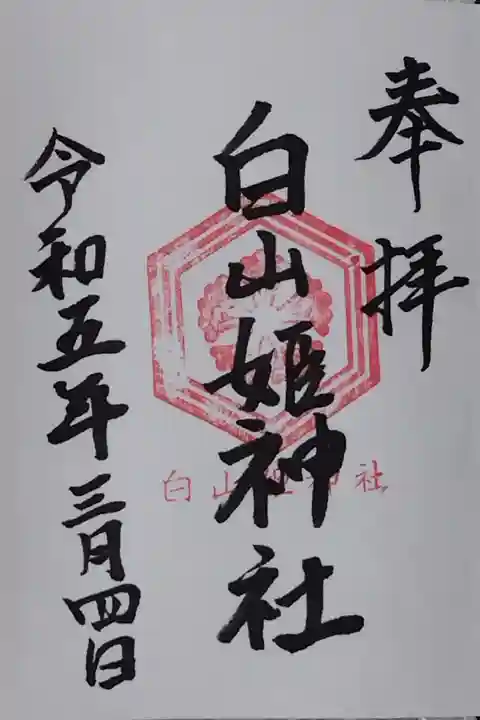 奉拝
白山姫神社
令和五年三月四日
白山姫神社